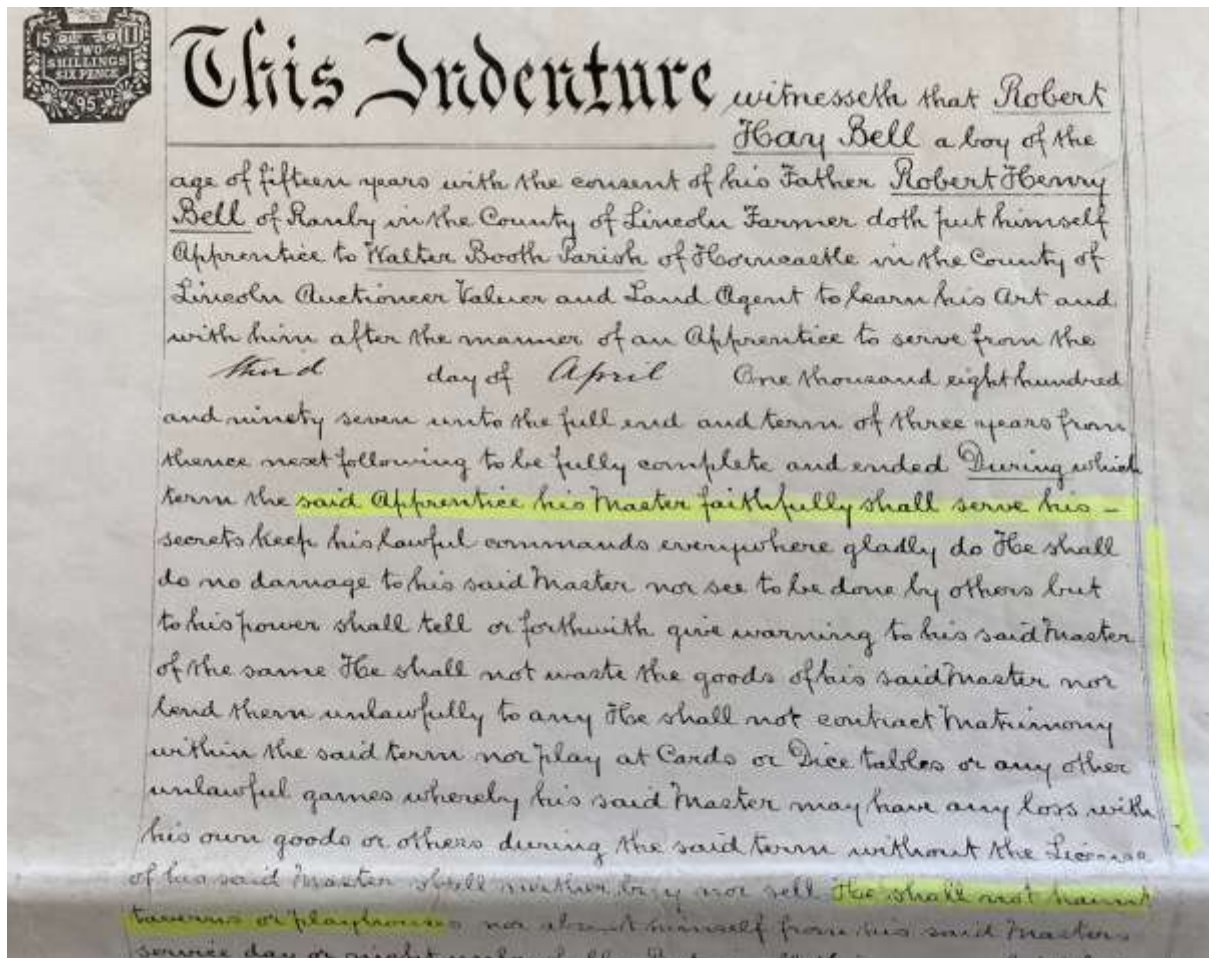 15 11
TWO
SHILLINGS
SIX PENCE
95
This Indenture witnesseth that Robert
Hay Bell a boy of the
age of fifteen years with the consent of his Father Robert Henry
Bell of Ranby in the County of Lincoln Farmer doth put himself
Apprentice to Walter Booth Parish of Horncastle in the County of
Lincoln Auctioneer Valuer and Land Agent to learn his Art and
with him after the manner of an Apprentice to serve from the
third day of April One thousand eight hundred
and ninety seven unto the full end and term of three years from
thence next following to be fully complete and ended During which
term the said Apprentice his Master faithfully shall serve his –
secrets keep his lawful commands everywhere gladly do He shall
do no damage to his said Master nor see to be done by others but
to his power shall tell or forthwith give warning to his said Master
of the same He shall not waste the goods of his said Master nor
lend them unlawfully to any He shall not contract Matrimony
within the said term nor play at Cards or Dice tables or any other
unlawful games whereby his said Master may have any loss with
his own goods or others during the said term without the License
of his said Master shall neither buy nor sell He shall not haunt
taverns or playhouses nor absent himself from his said Masters
service day or night